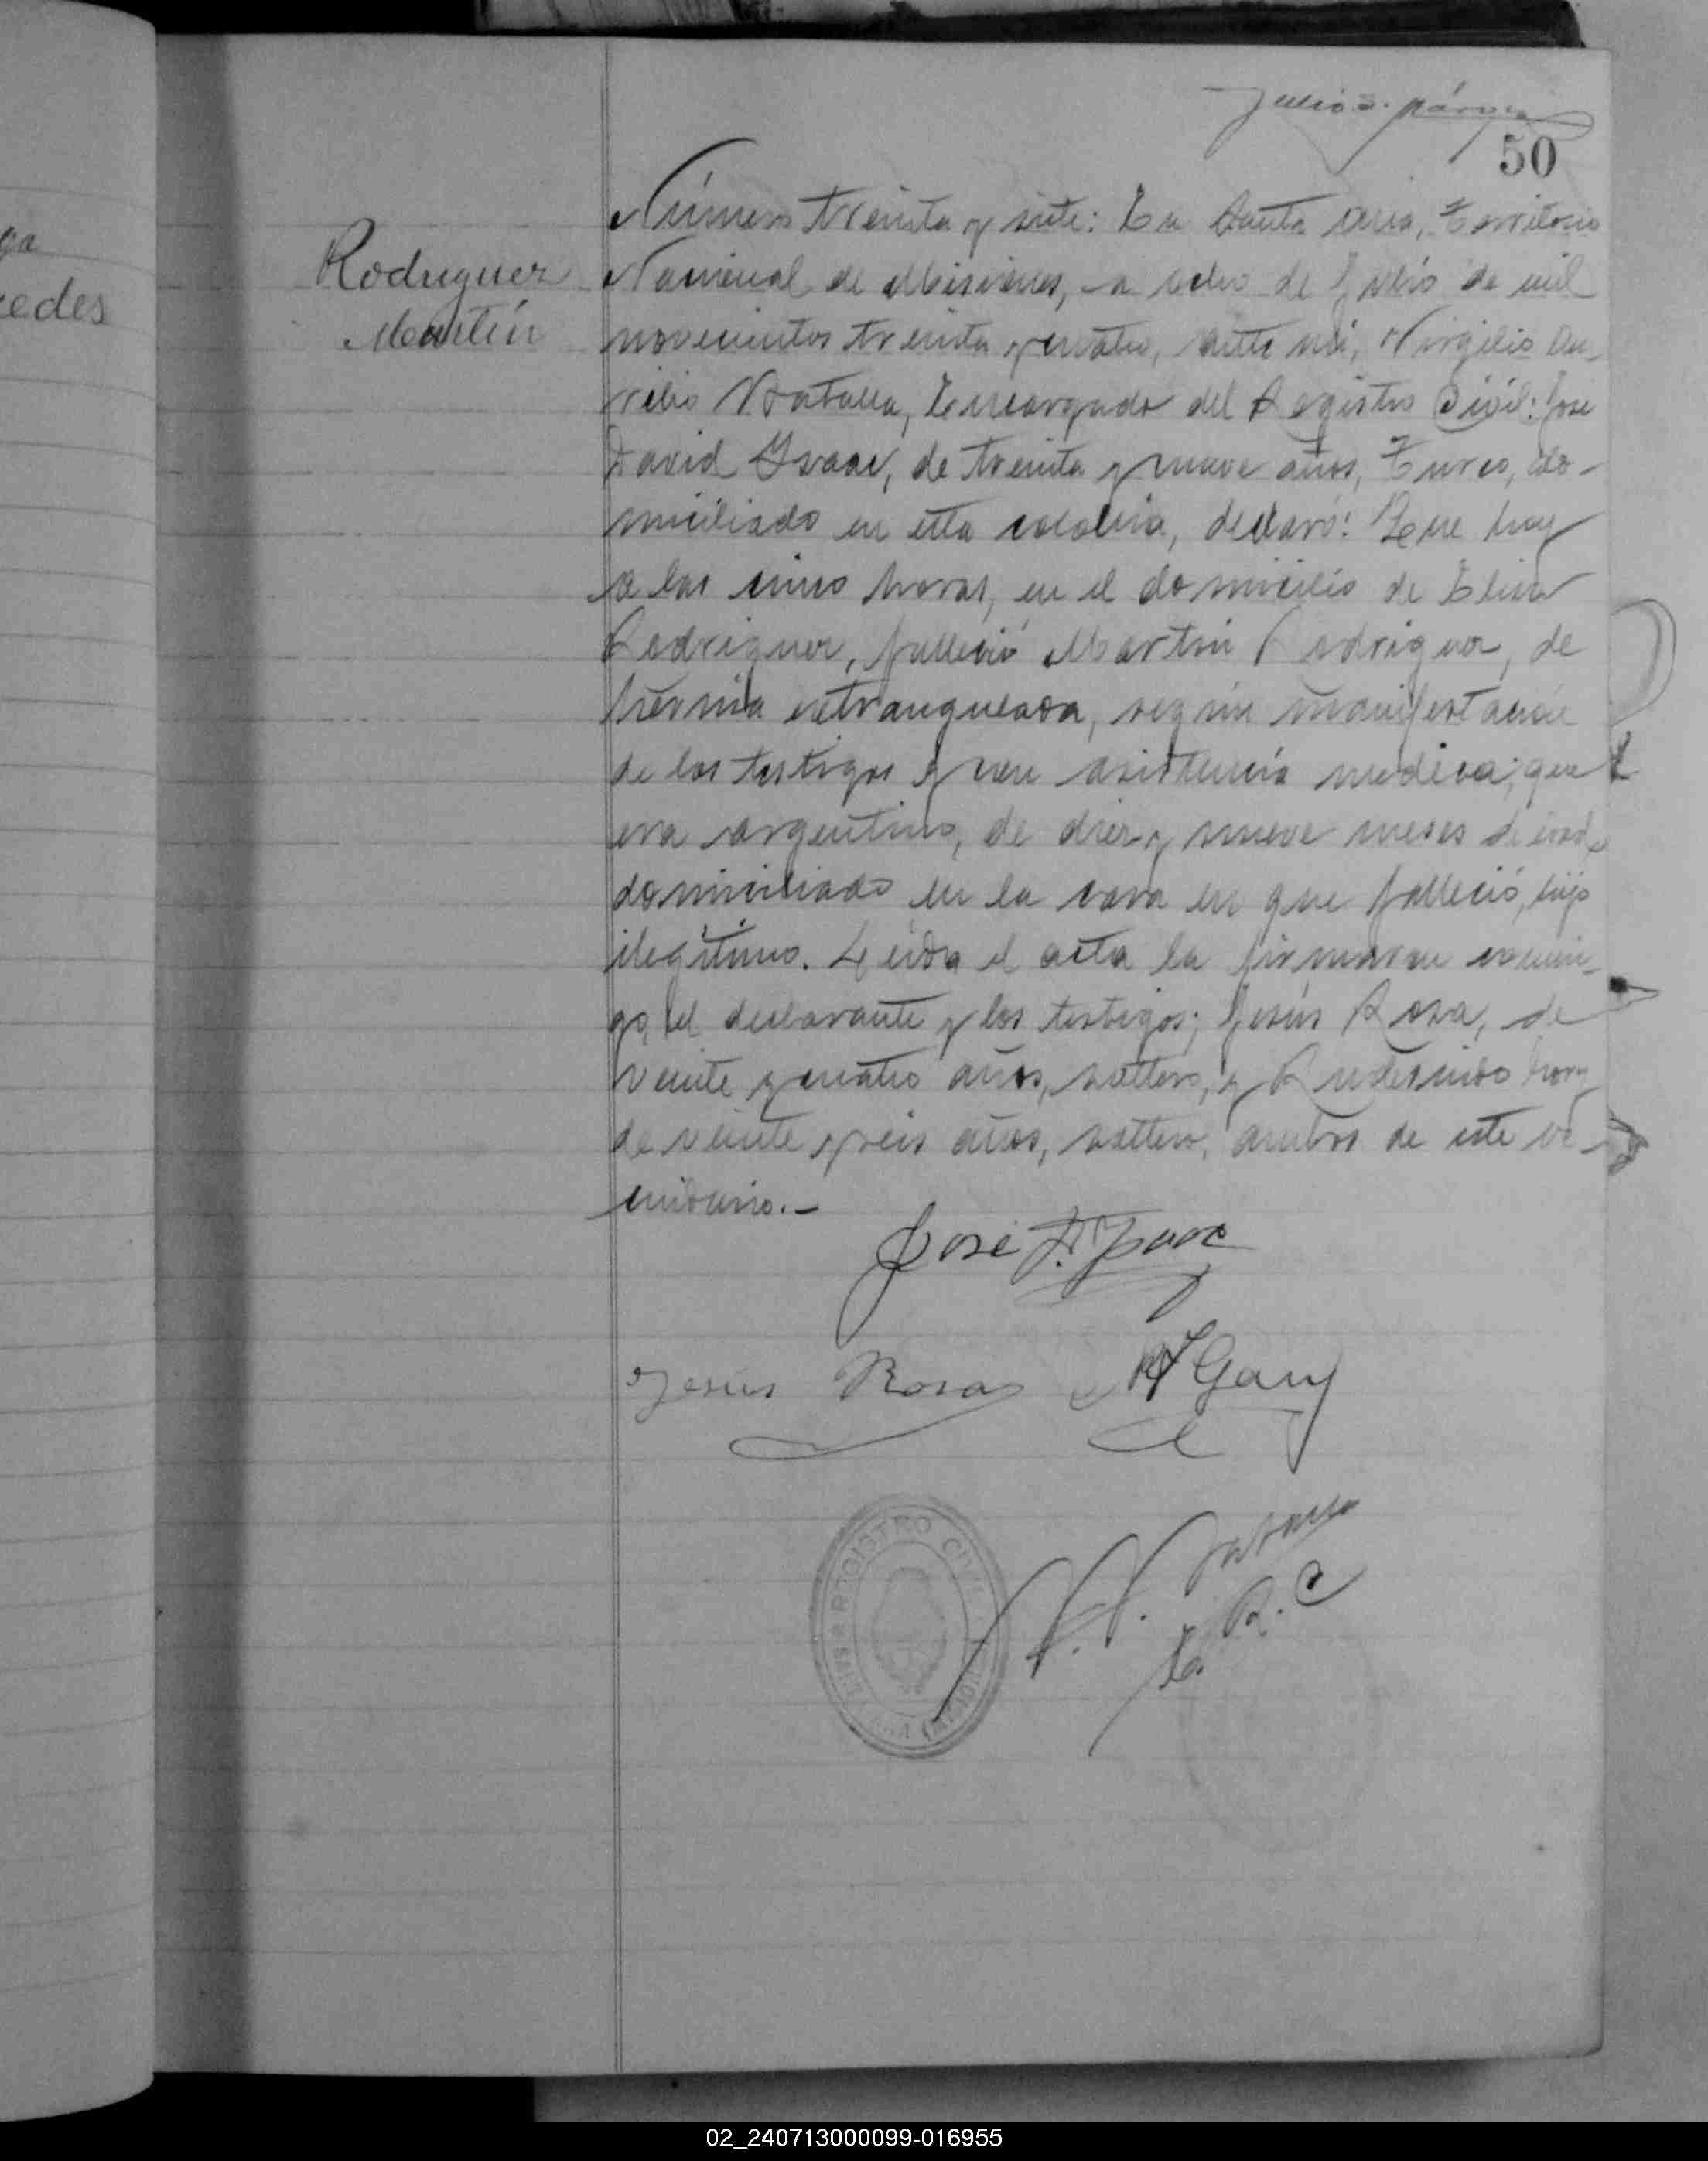 ga
cedes
50
Rodriguez
Martín
Número treinta y siete: En Santa Ana, Territorio
Nacional de Misiones, a ocho de Julio de mil
novecientos treinta y cuatro, ante mí, Virgilio
Encargado del Registro Civil: José
David Isaac, de treinta y nueve años, Turco, do-
miciliado en esta colonia, declaró: Que hoy
a las cinco horas, en el domicilio de Elisa
Rodriguez, falleció Martín Rodriguez, de
hernia estrangulada, según manifestación
de los testigos y sin asistencia medica; que
era argentino, de diez y nueve meses de edad,
domiciliado en la casa en que falleció, hijo
ilegítimo. Leída el acta la firmaron conmi-
go, el declarante y los testigos; Jesús Rosa, de
veinte y cuatro años, soltero, y Rudesindo
de veinte y seis años, soltero, ambos de este ve-
cindario.-
José D. Isaac
Jesús Rosas
E. R. C
REGISTRO CIVIL
SANTA ANA (MISIONES)
02_240713000099-016955